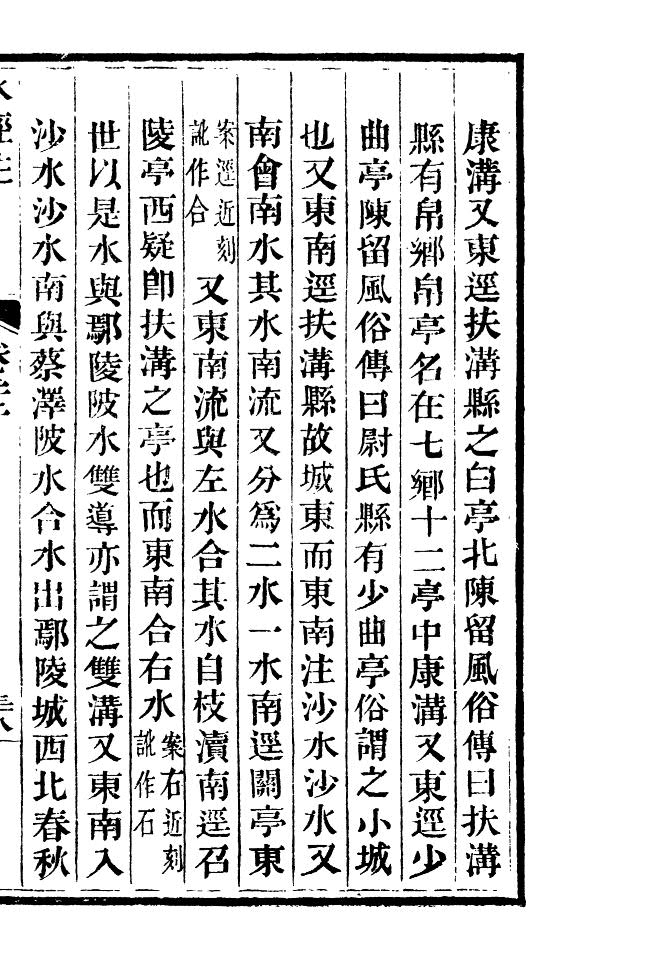 康溝又東逕扶溝縣之白亭北陳留風俗傳曰扶溝
縣有帛鄉帛亭名在七鄉十二亭中康溝又東逕少
曲亭陳留風俗傳曰尉氏縣有少曲亭俗謂之小城
也又東南逕扶溝縣故城東而東南注沙水沙水又
南會南水其水南流又分爲二水一水南逕關亭東
案逕近刻
訛作合
又東南流與左水合其水自枝瀆南逕召
陵亭西疑卽扶溝之亭也而東南合右水
案右近刻
訛作石
世以是水與鄢陵陂水雙導亦謂之雙溝又東南入
沙水沙水南與蔡澤陂水合水出鄢陵城西北春秋